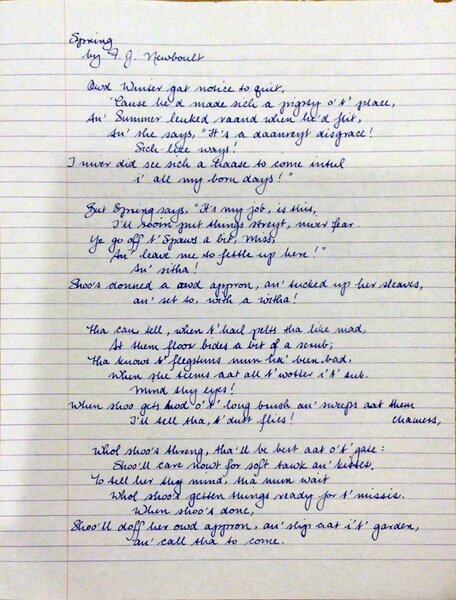 Spring
by F. J. Newboult
Owd Winter gat notice to quit,
'Cause he'd made sich a pigsty o't' place,
An' Summer leuked raand when he'd flit,
An' she says, "It's a daanreyt disgrace!
Sich-like ways!
I niver did see sich a haase to come intul
i' all my born days!"
But Spring says, "It's my job, is this,
I'll sooin put things streyt, niver fear.
Ye go off t' Spaws a bit, Miss,
An' leave me to fettle up here!"
An' sitha!
Shoo's donned a owd appron, an' tucked up her sleaves,
an' set to, with a witha!
Tha can tell, when t' hail pelts tha like mad,
At them floor bides a bit of a scrub;
Tha knows t' flegstuns mun ha' been bad,
When she teems aat all t' watter i't' tub.
Mind thy eyes!
When shoo gets hod o't' long brush an' sweeps aat them
I'll tell tha, t' dust flies! chamers,
Whol shoo's throng, tha'll be best aat o't' gate:
Shoo'll care nowt for soft tawk an' kisses,
To tell her thy mind, tha mun wait
Whol shoo's getten things ready for t' missis.
When shoo's done,
Shoo'll doff her owd appron, an' slip aat i't' garden,
an' call tha to come.